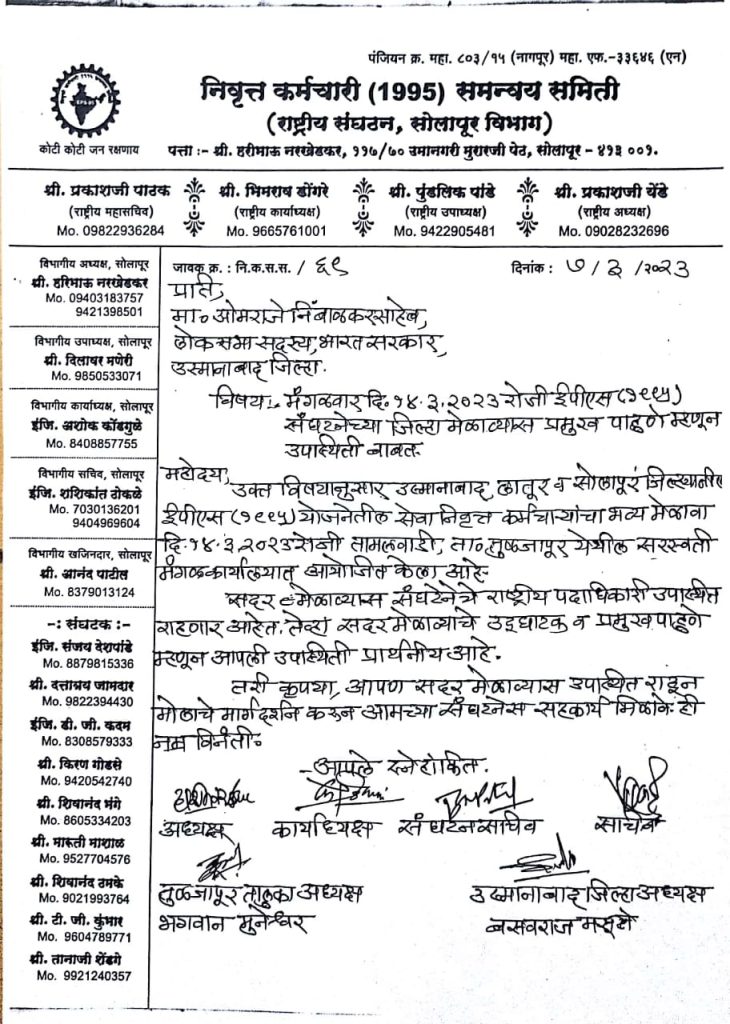 पंजियन क्र. महा. ८०३/१५ (नागपूर) महा. एफ.-३३६४६ (एन)
निवृत्त कर्मचारी (1995) समन्वय समिती
(राष्ट्रीय संघठन, सोलापूर विभाग)
कोटी कोटी जन रक्षणाय
पत्ता :- श्री. हरिभाऊ नरखेडकर, ११७/७० उमानगरी मुरारजी पेठ, सोलापूर - ४१३ ००१.
श्री. प्रकाशजी पाठक
(राष्ट्रीय महासचिव)
Mo. 09822936284
श्री. भिमराव डोंगरे
(राष्ट्रीय कार्याध्यक्ष)
Mo. 9665761001
श्री. पुंडलिक पांडे
(राष्ट्रीय उपाध्यक्ष)
Mo. 9422905481
श्री. प्रकाशजी येंडे
(राष्ट्रीय अध्यक्ष)
Mo. 09028232696
विभागीय अध्यक्ष, सोलापूर
श्री. हरिभाऊ नरखेडकर
Mo. 09403183757
9421398501
विभागीय उपाध्यक्ष, सोलापूर
श्री. दिलावर मणेरी
Mo. 9850533071
विभागीय कार्याध्यक्ष, सोलापूर
इंजि. अशोक कोंडगुळे
Mo. 8408857755
विभागीय सचिव, सोलापूर
इंजि. शशिकांत ठोकळे
Mo. 7030136201
9404969604
विभागीय खजिनदार, सोलापूर
श्री. आनंद पाटील
Mo. 8379013124
-: संघटक :-
इंजि. संजय देशपांडे
Mo. 8879815336
श्री. दत्तात्रय जामदार
Mo. 9822394430
इंजि. डी. जी. कदम
Mo. 8308579333
श्री. किरण गोडसे
Mo. 9420542740
श्री. शिवानंद भंगे
Mo. 8605334203
श्री. मारुती माशाळ
Mo. 9527704576
श्री. शिवानंद ठमके
Mo. 9021993764
श्री. टी. जी. कुंभार
Mo. 9604789771
श्री. तानाजी शेंडगे
Mo. 9921240357
जावक क्र. : नि.क.स.स. / ६९ दिनांक : ७/३/२०२३
प्रति,
मा. ओमराजे निंबाळकरसाहेब,
लोकसभा सदस्य, भारत सरकार,
उस्मानाबाद जिल्हा.
विषय :- मंगळवार दि. १४.३.२०२३ रोजी ईपीएस (१९९५)
संघटनेच्या जिल्हा मेळाव्यास प्रमुख पाहुणे म्हणून
उपस्थिती बाबत.
महोदय,
उक्त विषयानुसार उस्मानाबाद, लातूर व सोलापूर जिल्ह्यातील
ईपीएस (१९९५) योजनेतील सेवा निवृत्त कर्मचाऱ्यांचा भव्य मेळावा
दि. १४.३.२०२३ रोजी तामलवाडी, ता. तुळजापूर येथील सरस्वती
मंगळकार्यालयात आयोजित केला आहे.
सदर मेळाव्यास संघटनेचे राष्ट्रीय पदाधिकारी उपस्थित
राहणार आहेत. तेव्हा सदर मेळाव्याचे उद्घाटक व प्रमुख पाहुणे
म्हणून आपली उपस्थिती प्रार्थनीय आहे.
तरी कृपया, आपण सदर मेळाव्यास उपस्थित राहून
मोलाचे मार्गदर्शन करून आमच्या संघटनेस सहकार्य मिळावे ही
नम्र विनंती.
आपले स्नेहांकित.
अध्यक्ष कार्याध्यक्ष संघटन सचिव सचिव
तुळजापूर तालुका अध्यक्ष
भगवान मुनेश्वर
उस्मानाबाद जिल्हा अध्यक्ष
बसवराज